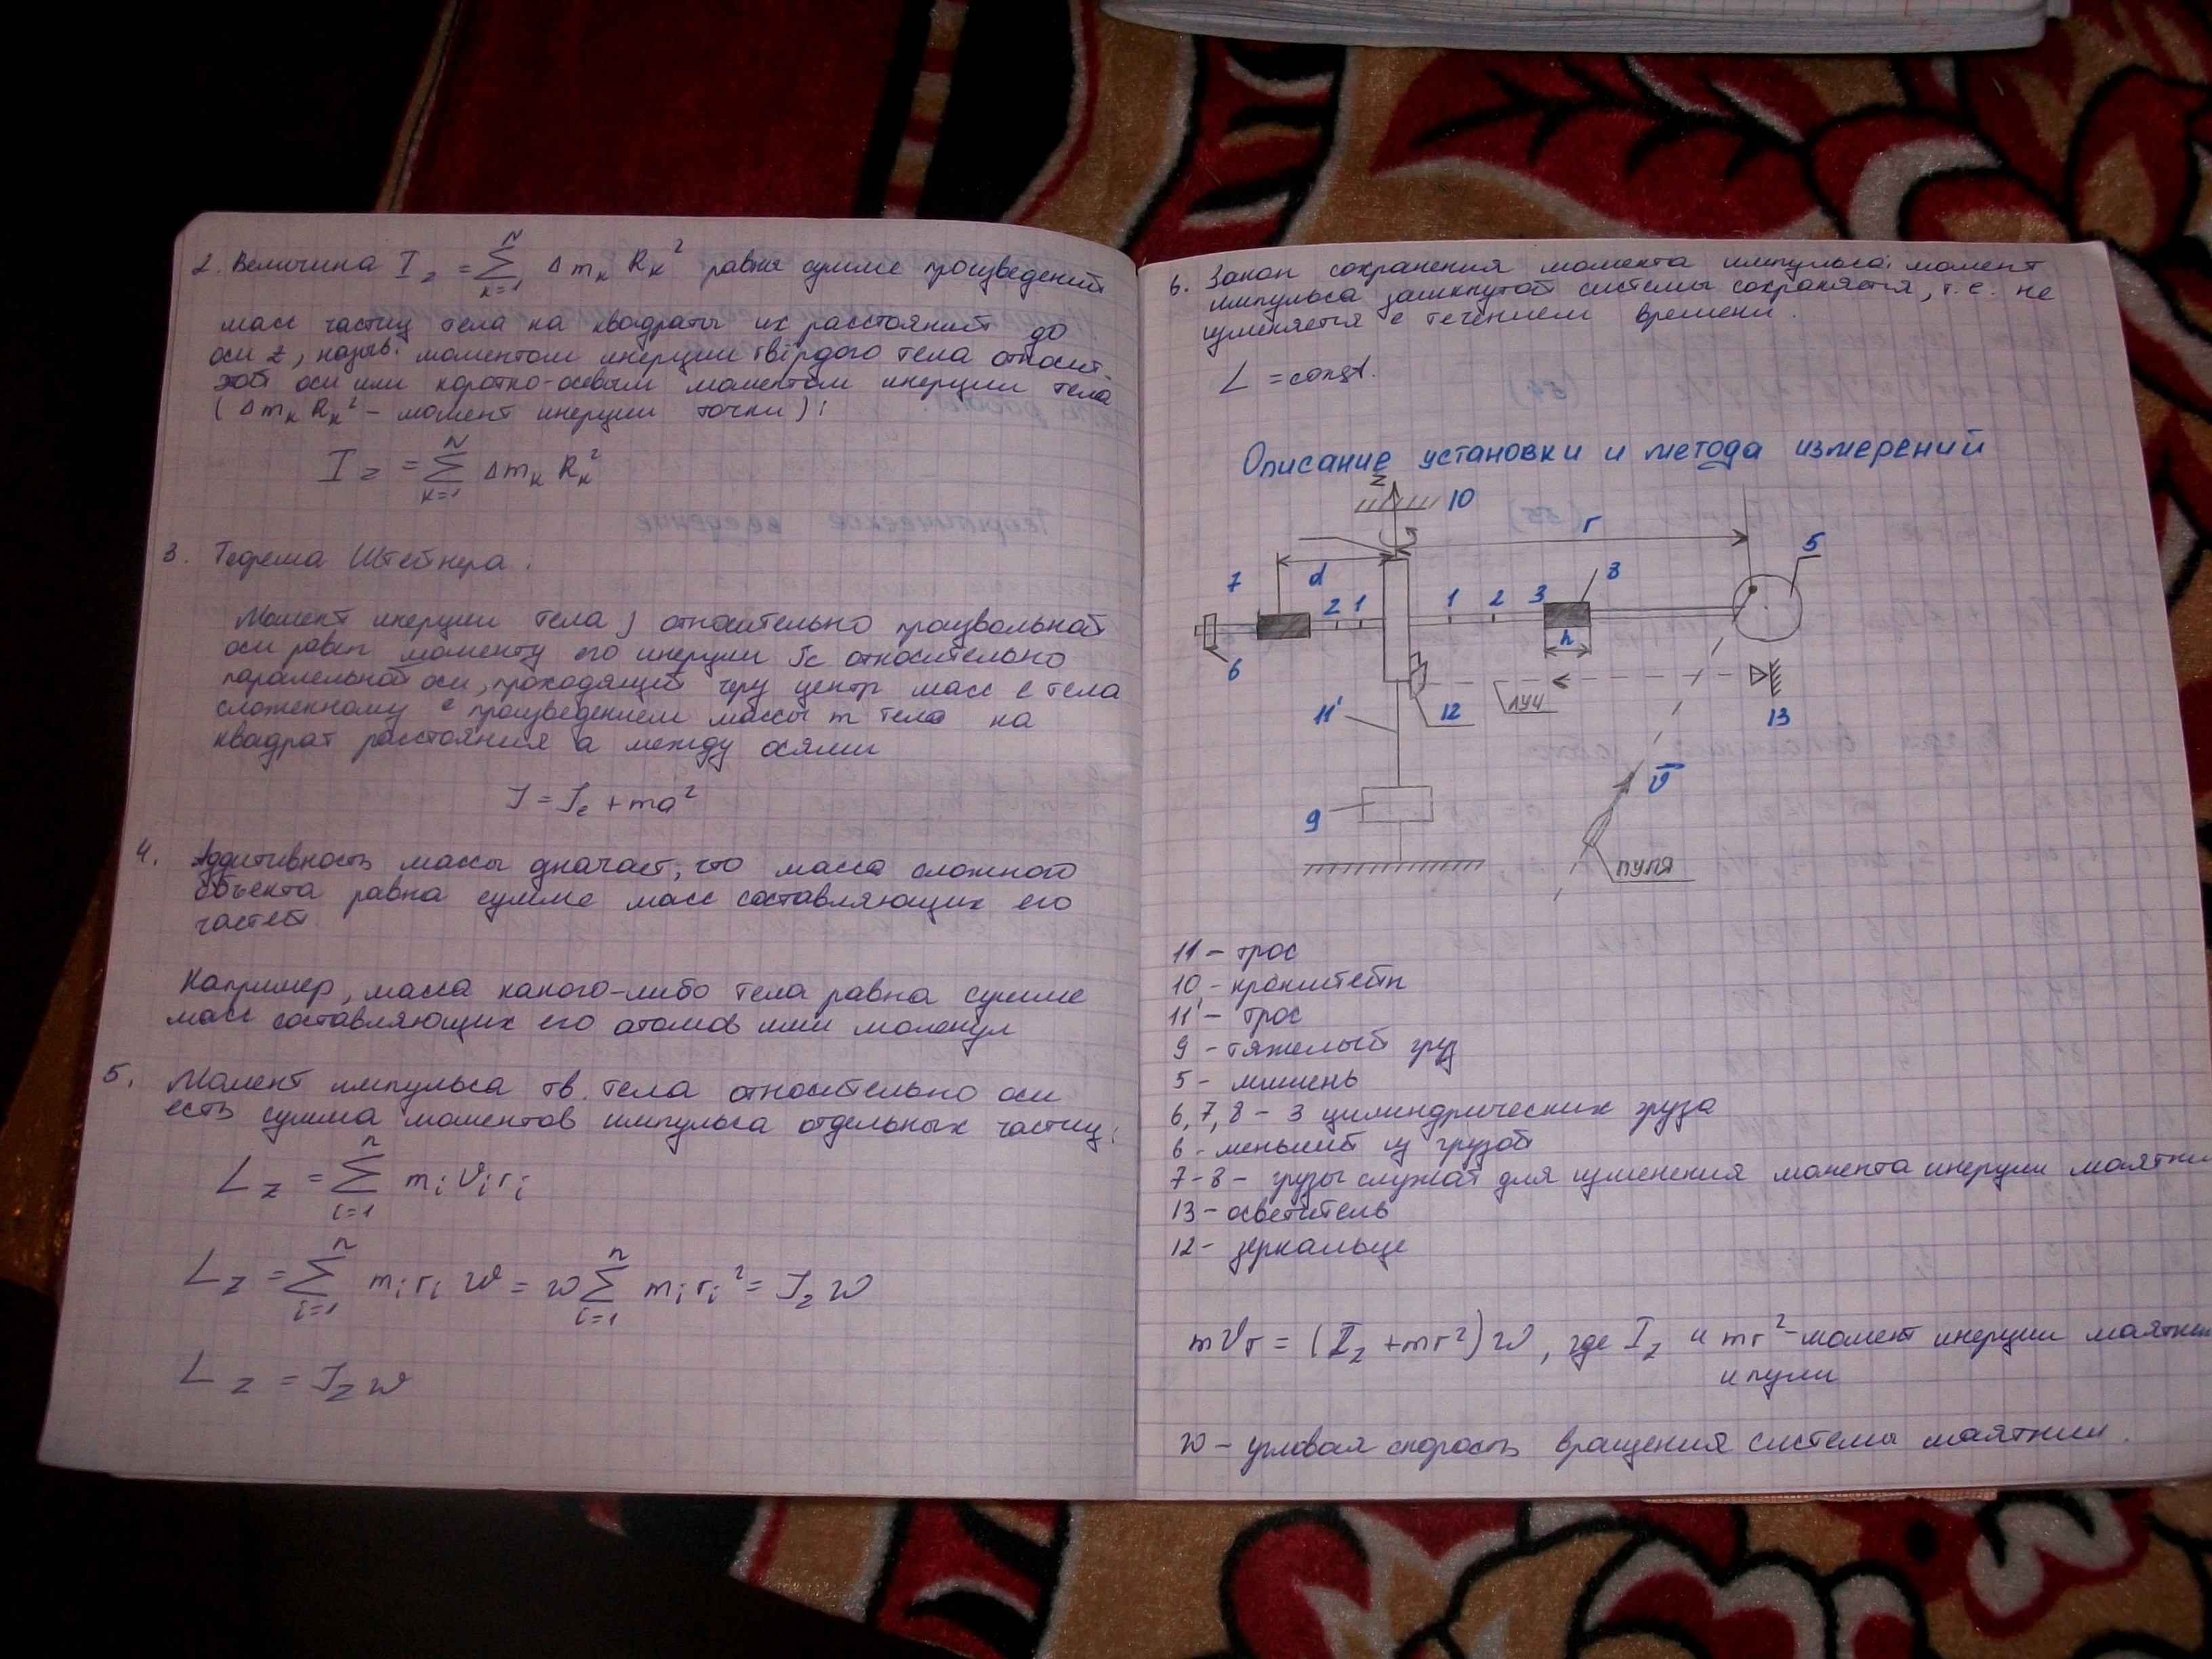 2. Величина I_z = Σ_{k=1}^{N} Δm_k R_k² равна сумме произведений
масс частиц тела на квадраты их расстояний до
оси z, назыв. моментом инерции твёрдого тела относит.
этой оси или коротко-осевым моментом инерции тела
(Δm_k R_k² - момент инерции точки):
I_z = Σ_{k=1}^{N} Δm_k R_k²
3. Теорема Штейнера:
Момент инерции тела J относительно произвольной
оси равен моменту его инерции Jc относительно
паралельной оси, проходящий через центр масс с тела
сложенному с произведением массы m тела на
квадрат расстояния a между осями
J = J_c + ma²
4. Аддитивность массы означает, что масса сложного
объекта равна сумме масс составляющих его
частей
Например, масса какого-либо тела равна сумме
масс составляющих его атомов или молекул
5. Момент импульса тв. тела относительно оси
есть сумма моментов импульса отдельных частиц:
L_z = Σ_{i=1}^{n} m_i v_i r_i
L_z = Σ_{i=1}^{n} m_i r_i w = w Σ_{i=1}^{n} m_i r_i² = J_z w
L_z = J_z w
6. Закон сохранения момента импульса: момент
импульса замкнутой системы сохраняется, т.е. не
изменяется с течением времени.
L = const.
Описание установки и метода измерений
z
10
r
5
d
7
8
2 1
1 2 3
h
6
11'
12
луч
13
9
v
пуля
11 - трос
10 - кронштейн
11' - трос
9 - тяжелый груз
5 - мишень
6, 7, 8 - 3 цилиндрических груза
6 - меньший из грузов
7-8 - грузы служат для изменения момента инерции маятни
13 - осветитель
12 - зеркальце
mvr = (I_z + mr²)w, где I_z и mr² - момент инерции маятни
и пули
w - угловая скорость вращения системы маятник.